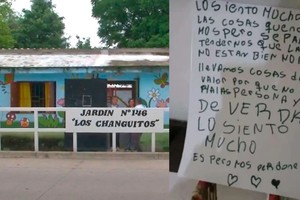 JARDIN N°146
"LOS CHANGUITOS"
LO SIENTO MUCHO
LAS COSAS QUE
NOS PERO SE PA
TENDERNOS QUE LA
NO ESTAR BIEN NO
LLEVAMOS COSAS DE
VALOR POR QUE NO
PERSONA Y
DE VERDA
LO SIENTO
MUCHO
ESPERO NOS PERDONE